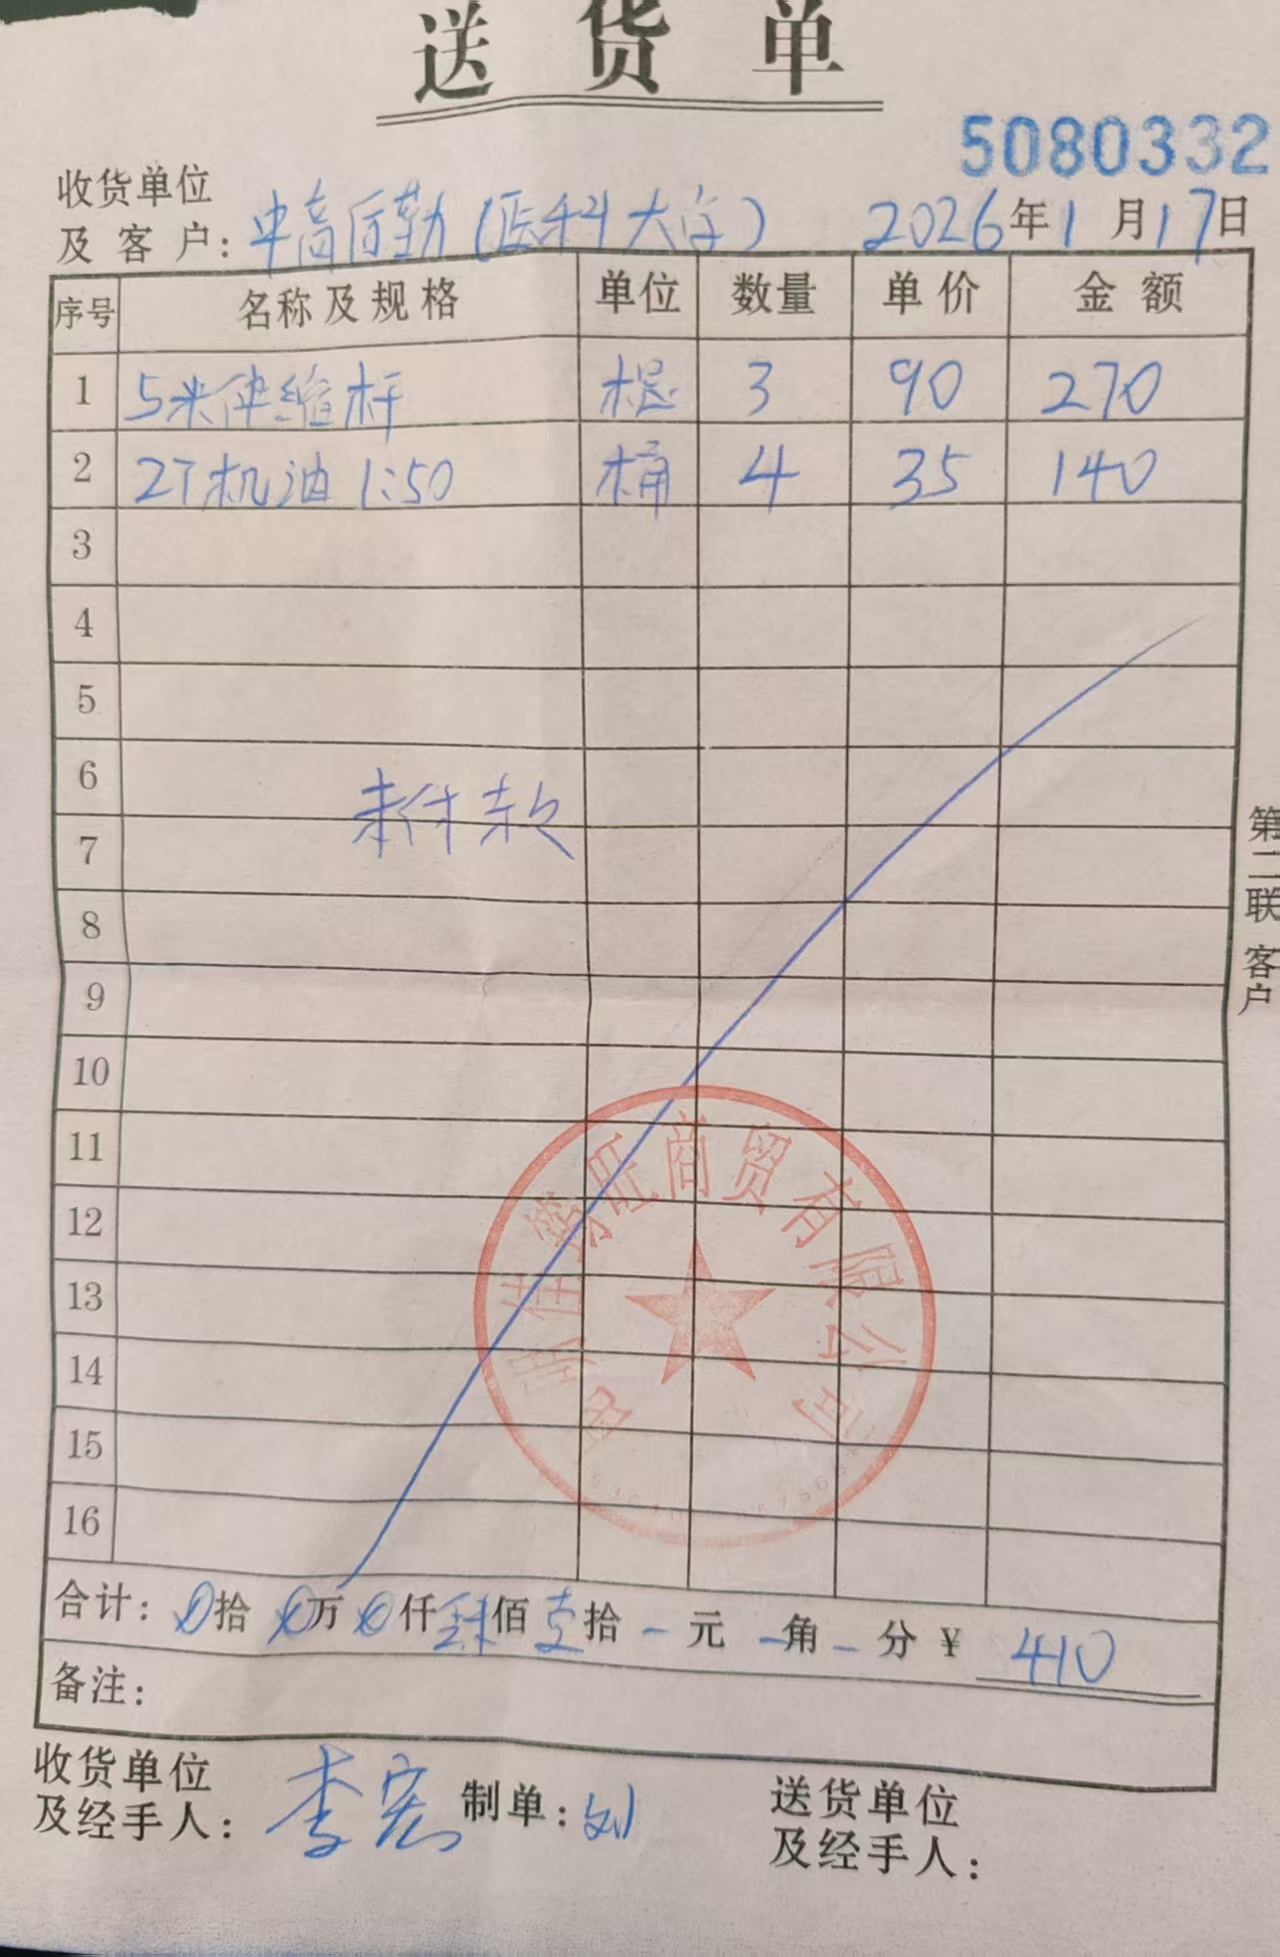 送货单
5080332
收货单位
及客户：中高后勤（医科大学） 2026年1月17日
序号 名称及规格 单位 数量 单价 金额
1 5米伸缩杆 根 3 90 270
2 2T机油 1:50 桶 4 35 140
3
4
5
6
未付款
7
8
9
10
11
12
13
14
15
16
旺商贸有限公司
合计：0拾0万0仟肆佰壹拾-元-角-分￥410
备注：
收货单位
及经手人：李宏 制单：刘 送货单位
及经手人：
第二联 客户